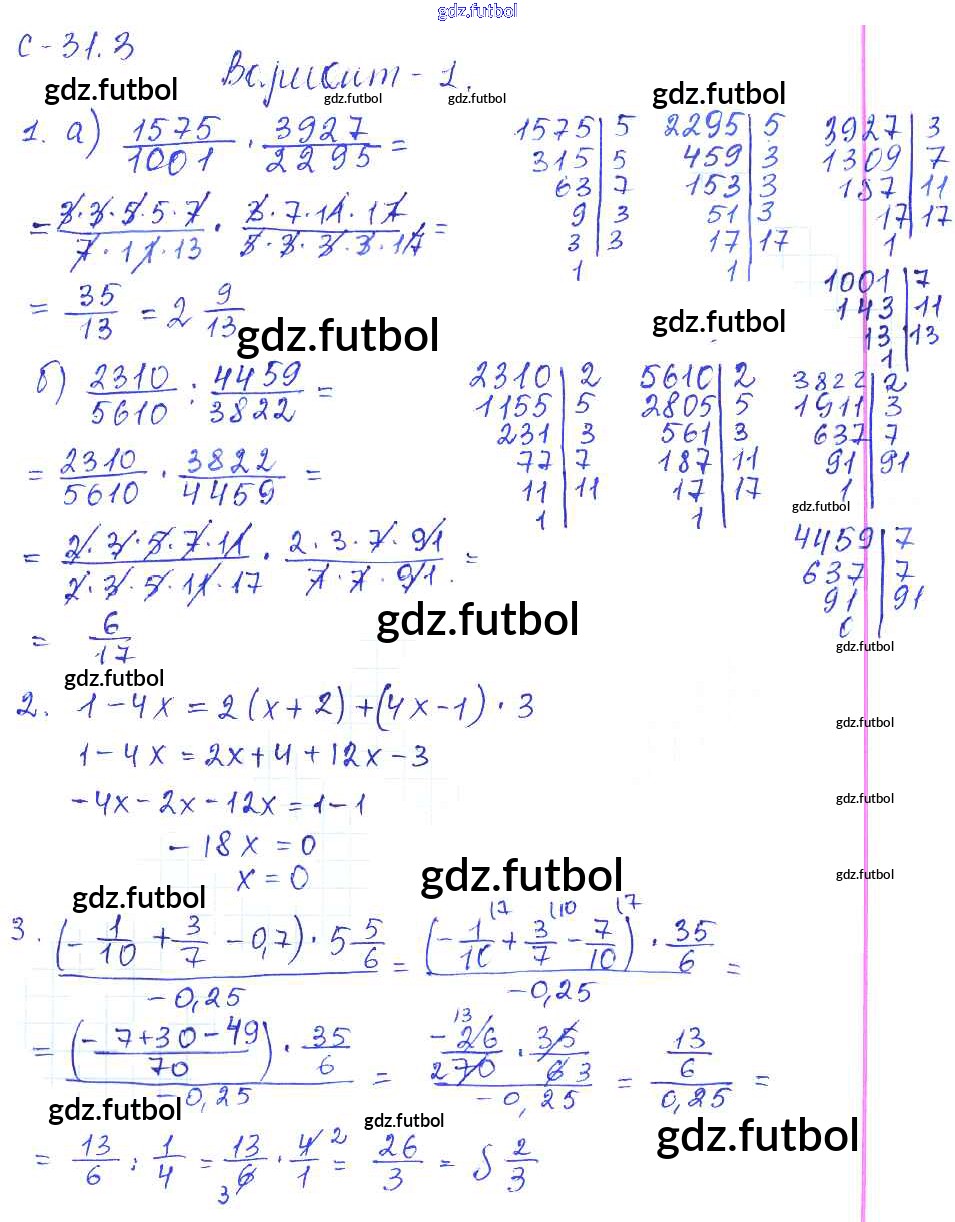 gdz.futbol
С-31.3
gdz.futbol Вариант-1. gdz.futbol gdz.futbol gdz.futbol
1. а) 1575/1001 · 3927/2295 =
= 3·3·5·5·7/7·11·13 · 3·7·11·17/5·3·3·3·17 =
= 35/13 = 2 9/13
1575|5
315|5
63|7
9|3
3|3
1
2295|5
459|3
153|3
51|3
17|17
1
3927|3
1309|7
187|11
17|17
1
1001|7
143|11
13|13
1
gdz.futbol gdz.futbol
б) 2310/5610 : 4459/3822 =
= 2310/5610 · 3822/4459 =
= 2·3·5·7·11/2·3·5·11·17 · 2·3·7·91/7·7·91. =
= 6/17
2310|2
1155|5
231|3
77|7
11|11
1
5610|2
2805|5
561|3
187|11
17|17
1
3822|2
1911|3
637|7
91|91
1
gdz.futbol
4459|7
637|7
91|91
0
gdz.futbol
gdz.futbol
gdz.futbol
2. 1-4x = 2(x+2)+(4x-1)·3
gdz.futbol
1-4x = 2x+4+12x-3
-4x-2x-12x = 1-1
gdz.futbol
-18x = 0
x = 0
gdz.futbol
gdz.futbol
gdz.futbol
3. (-1/10 + 3/7 - 0,7)·5 5/6 / -0,25 = (-1/10 (7 + 3/7 (10 - 7/10 (7) · 35/6 / -0,25 =
= (-7+30-49/70) · 35/6 / -0,25 = 13 -26/2 70 · 35/6 3 / -0,25 = 13/6 / 0,25 =
gdz.futbol gdz.futbol gdz.futbol
= 13/6 : 1/4 = 13/3 6 · 4 2/1 = 26/3 = 8 2/3